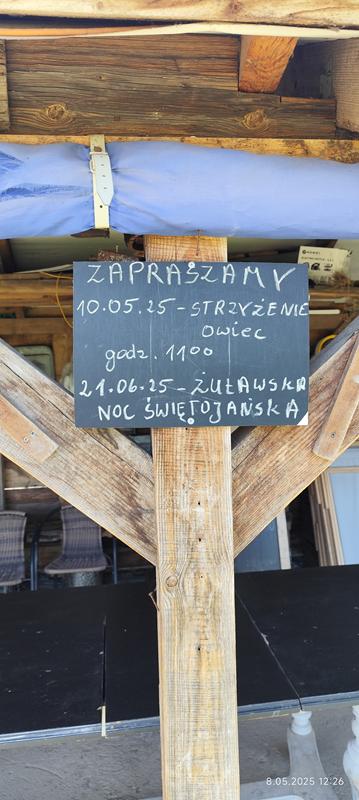 ZAPRASZAMY
10.05.25 - STRZYŻENIE
owiec
godz. 11⁰⁰
21.06.25 - ŻUŁAWSKA
NOC ŚWIĘTOJAŃSKA
8.05.2025 12:26